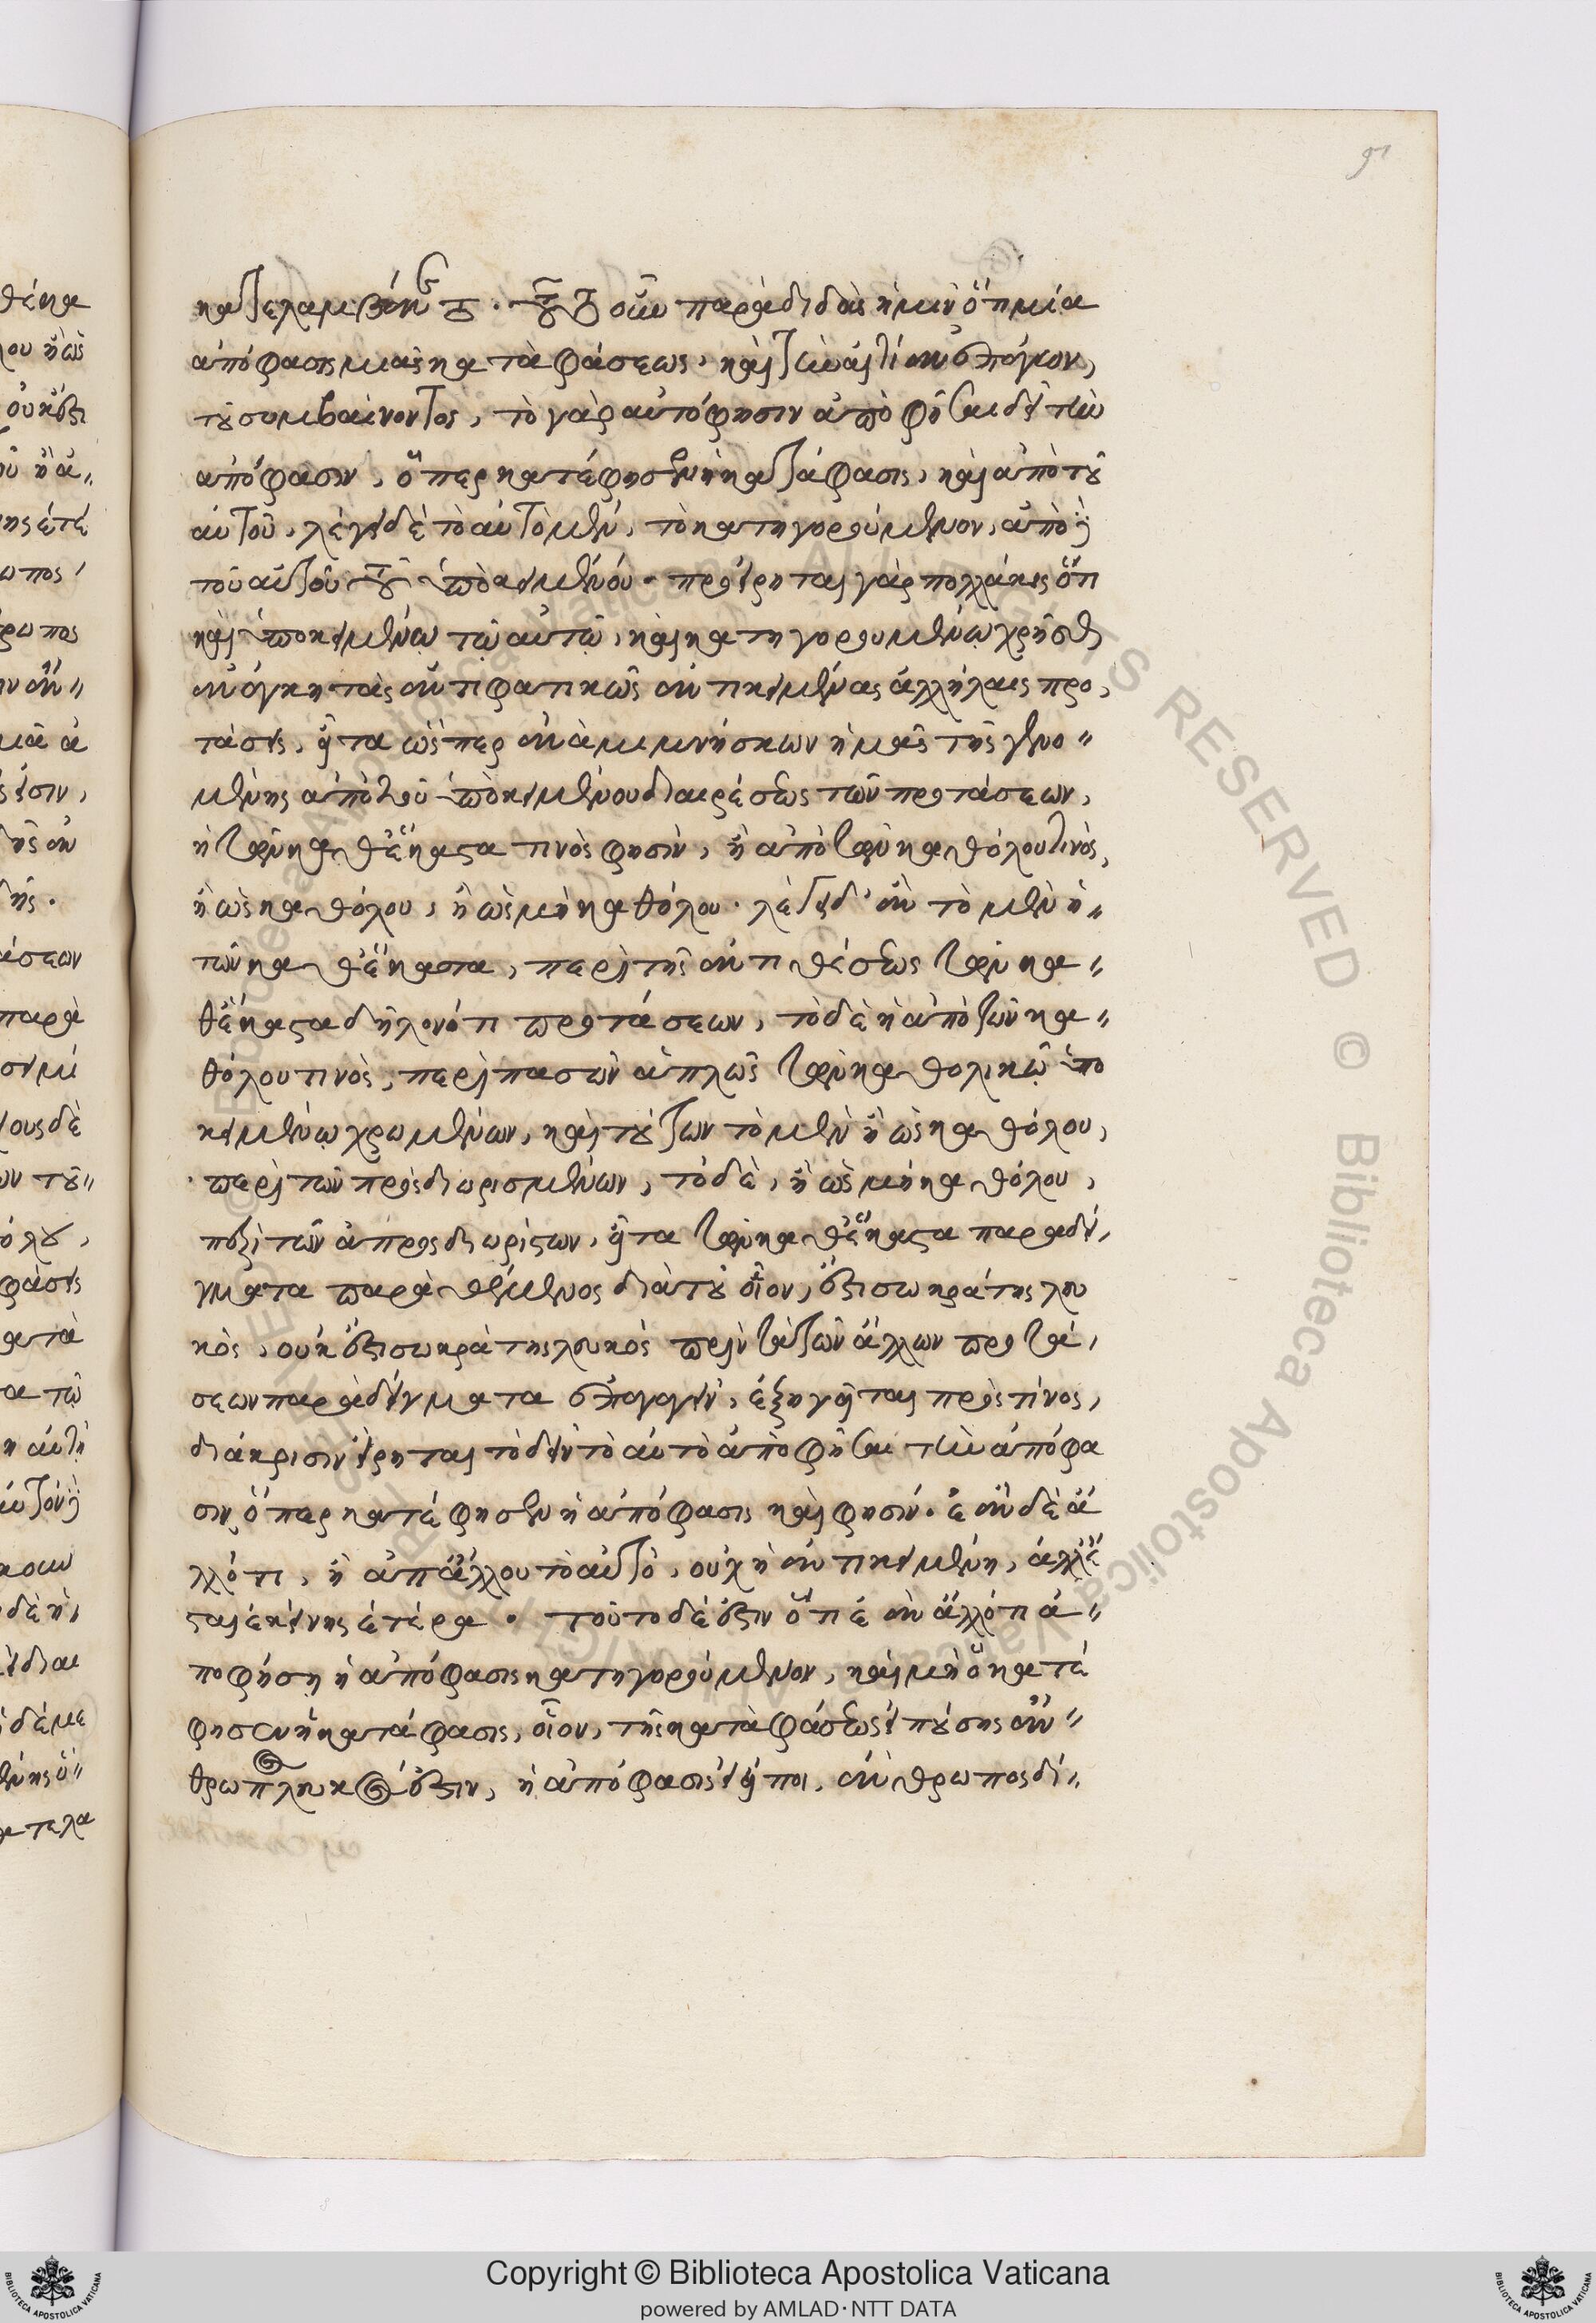 κατελαμβάνετο. τοῦτο οὖν παραδιδοὺς ἡμῖν ὅτι μία
ἀπόφασις μιᾶς καταφάσεως. καὶ τὴν αἰτίαν ἐπάγων,
τοῦ συμβαίνοντος, τὸ γὰρ αὐτό φησιν ἀποφῆσαι δεῖ τὴν
ἀπόφασιν, ὅπερ κατέφησεν ἡ κατάφασις, καὶ ἀπὸ τοῦ
αὐτοῦ. λέγει δὲ τὸ αὐτὸ μὲν, τὸ κατηγορούμενον, ἀπὸ δὲ
τοῦ αὐτοῦ τοῦ ὑποκειμένου. προείρηται γὰρ πολλάκις ὅτι
καὶ ὑποκειμένῳ τῷ αὐτῷ, καὶ κατηγορουμένῳ χρῆσθαι
ἀνάγκη τὰς ἀντιφατικῶς ἀντικειμένας ἀλλήλαις προ,
τάσεις. εἶτα ὥσπερ ἀναμιμνήσκων ἡμᾶς τῆς γενο〃
μένης ἀπὸ τοῦ ὑποκειμένου διαιρέσεως τῶν προτάσεων,
ἢ τῶν καθέκαστα τινός φησιν, ἢ ἀπὸ τῶν καθόλου τινός,
ἢ ὡς καθόλου, ἢ ὡς μὴ καθόλου. λέγει δ' ἂν τὸ μὲν ἢ〃
τῶν καθέκαστα, περὶ τῆς ἀντιθέσεως τῶν κα〃
θέκαστα δηλονότι προτάσεων, τὸ δὲ ἢ ἀπὸ τῶν κα〃
θόλου τινός, περὶ πασῶν ἁπλῶς τῶν καθολικῷ ὑπο
κειμένῳ χρωμένων, καὶ τούτων τὸ μὲν ἢ ὡς καθόλου,
περὶ τῶν προσδιωρισμένων, τὸ δὲ, ἢ ὡς μὴ καθόλου,
περὶ τῶν ἀπροσδιορίστων. εἶτα τῶν καθέκαστα παραδεί,
γματα παραθέμενος διὰ τοῦ οἷον, ἔστι σωκράτης λευ
κός, οὐκ ἔστι σωκράτης λευκός πρὶν τὰ τῶν ἄλλων προτά,
σεων παραδείγματα ἐπαγαγεῖν, ἐξηγεῖται πρὸς τίνος,
διάκρισιν εἴρηται τὸ δεῖν τὸ αὐτὸ ἀποφῆσαι τὴν ἀπόφα
σιν, ὅπερ κατέφησεν ἡ ἀπόφασις καὶ φησίν. ἐὰν δὲ ἄ
λλό τι, ἢ ἀπ' ἄλλου τὸ αὐτὸ, οὐχ ἡ ἀντικειμένη, ἀλλ' ἔ
σται ἐκείνης ἑτέρα. τοῦτο δέ ἐστιν ὅτι ἐὰν ἄλλό τι ἀ〃
ποφήσῃ ἡ ἀπόφασις κατηγορούμενον, καὶ μὴ ὃ κατέ
φησεν ἡ κατάφασις, οἷον, τῆς καταφάσεως εἰπούσης ἄν〃
θρωπος λευκός ἐστιν, ἡ ἀπόφασις εἰ εἴποι, ἄνθρωπος δί〃